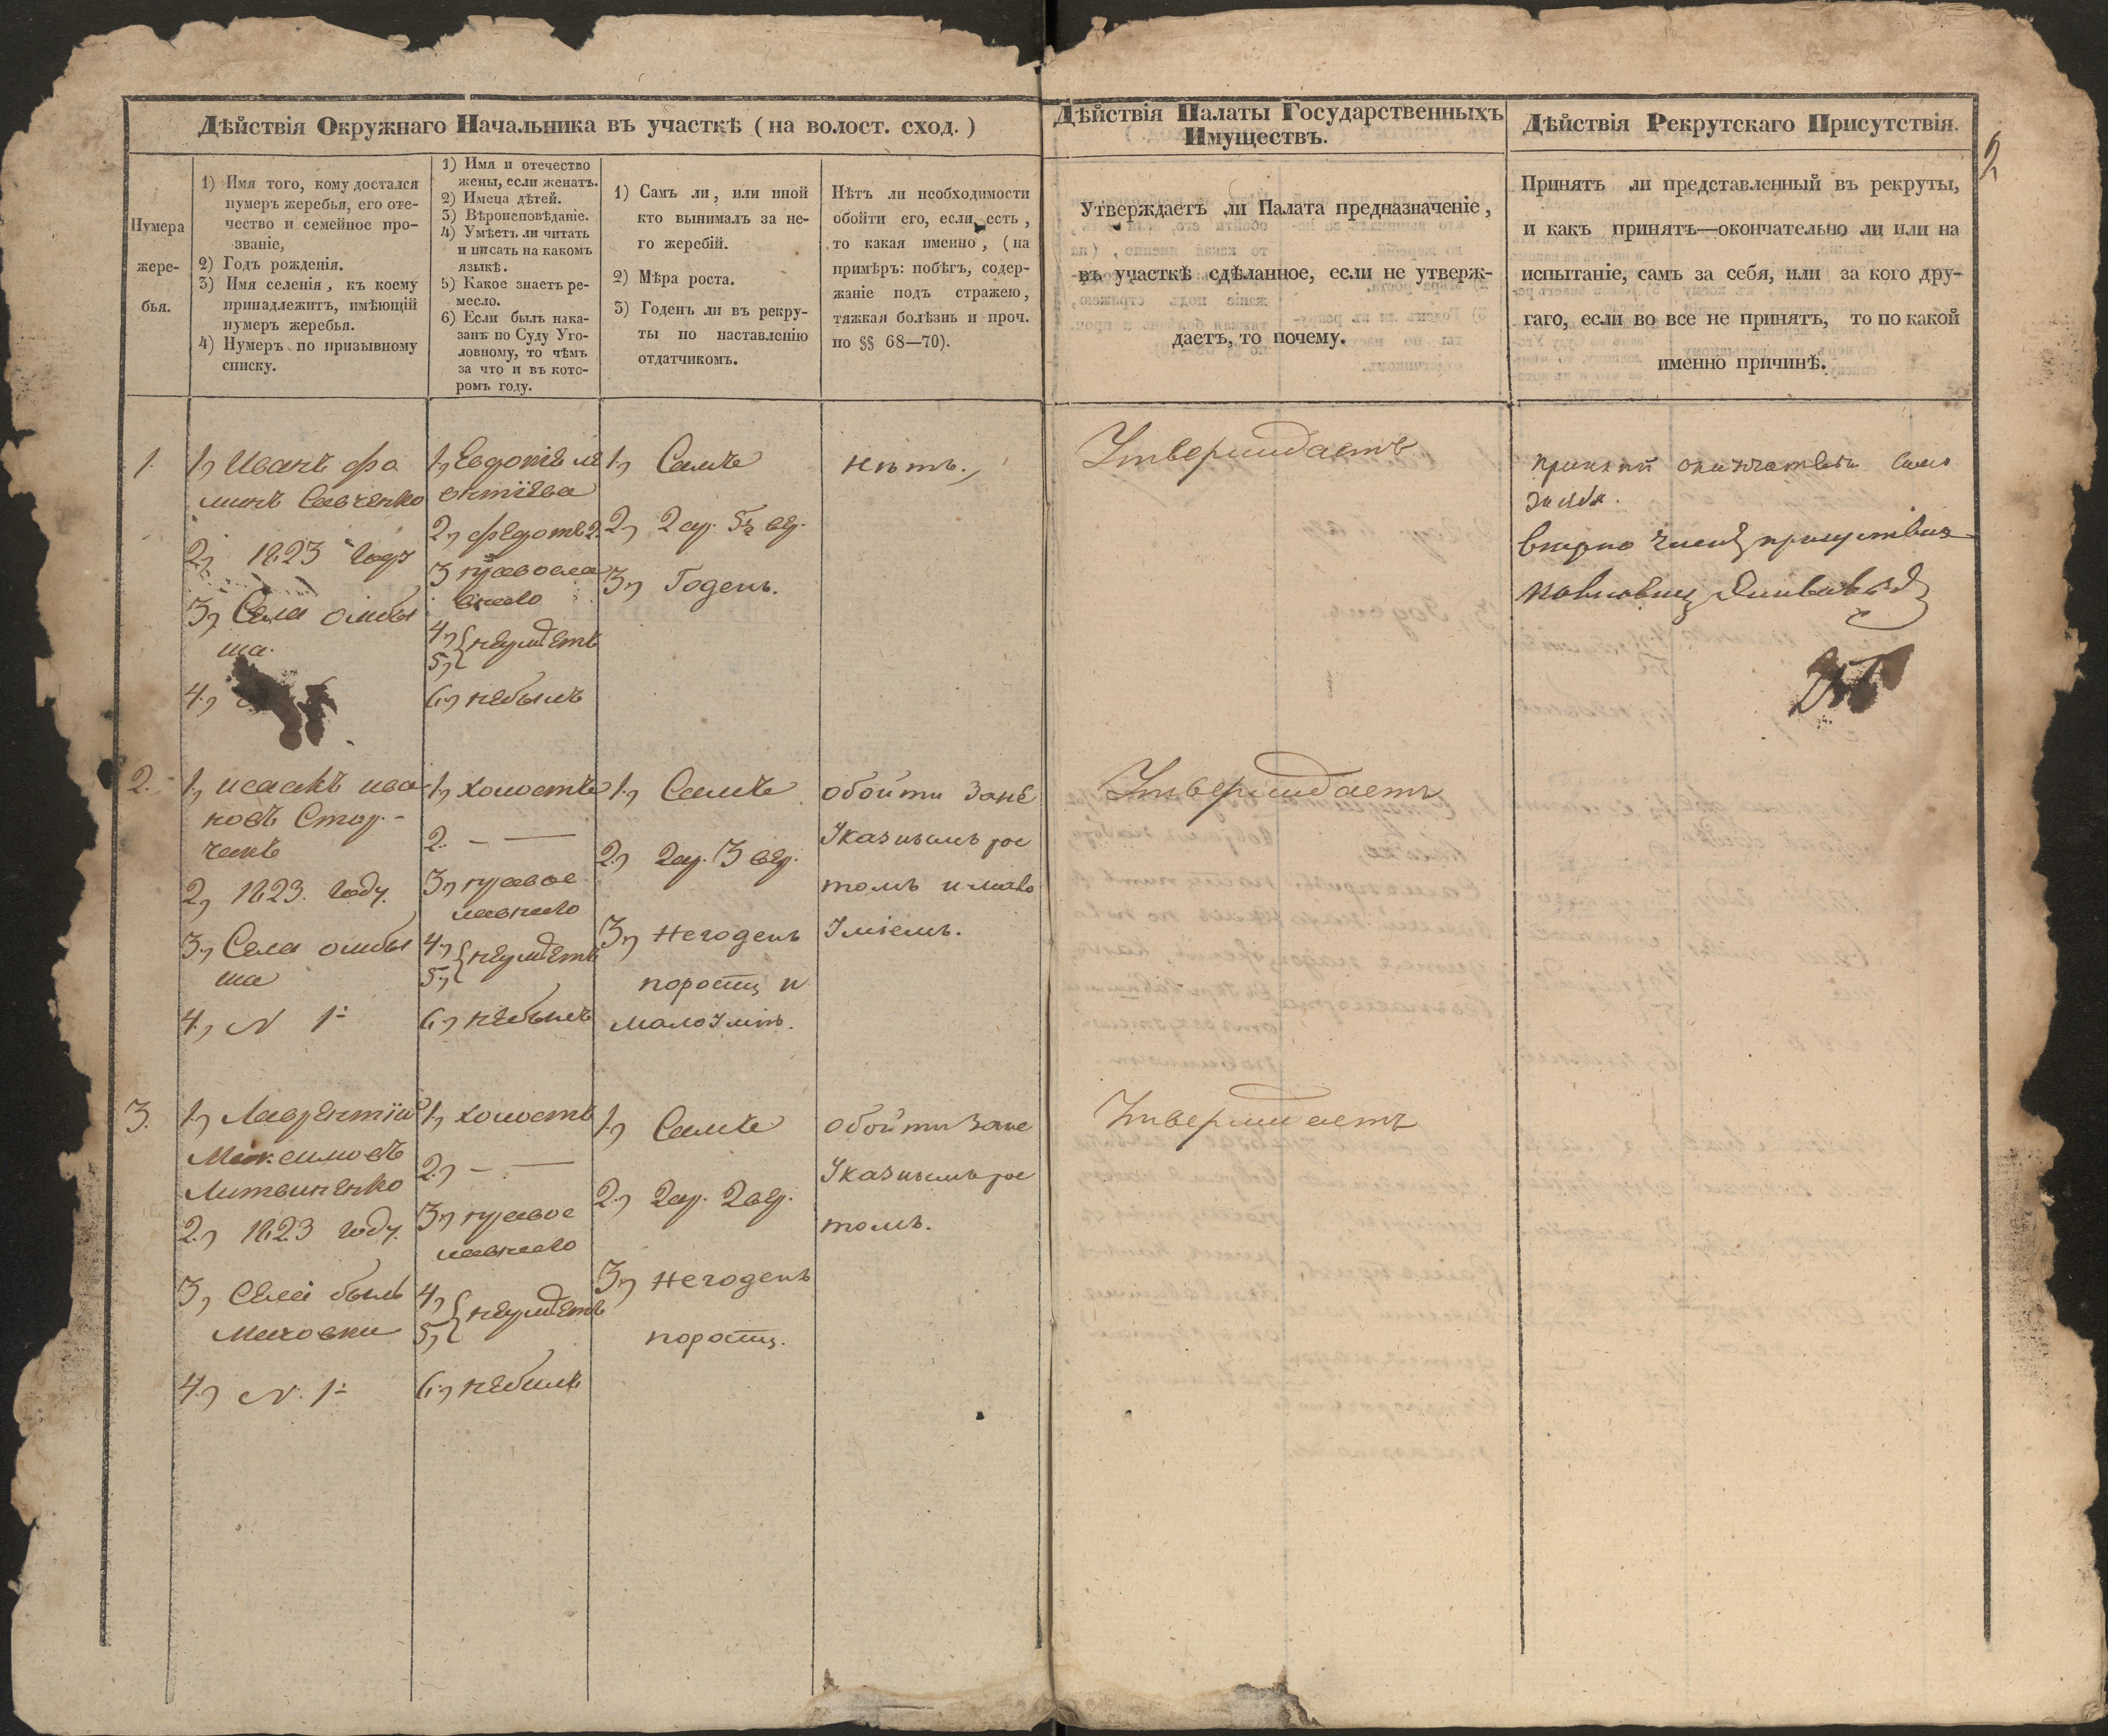 Дѣйствія Окружнаго Начальника въ участкѣ (на волост. сход.)
Нумера
жере-
бья.
1) Имя того, кому достался
нумеръ жеребья, его оте-
чество и семейное про-
званіе,
2) Годъ рожденія.
3) Имя селенія, къ коему
принадлежитъ, имѣющій
нумеръ жеребья.
4) Нумеръ по призывному
списку.
1) Имя и отечество
жены, если женатъ.
2) Имена дѣтей.
3) Вѣроисповѣданіе.
4) Умѣетъ ли читать
и писать на какомъ
языкѣ.
5) Какое знаетъ ре-
месло.
6) Если былъ нака-
занъ по Суду Уго-
ловному, то чѣмъ
за что и въ кото-
ромъ году.
1) Самъ ли, или иной
кто вынималъ за не-
го жеребій.
2) Мѣра роста.
3) Годенъ ли въ рекру-
ты по наставленію
отдатчикомъ.
Нѣтъ ли необходимости
обойти его, если есть,
то какая именно, (на
примѣръ: побѣгъ, содер-
жаніе подъ стражею,
тяжкая болѣзнь и проч.
по §§ 68—70).
Дѣйствія Палаты Государственныхъ
Имуществъ.
Утверждаетъ ли Палата предназначеніе,
въ участкѣ сдѣланное, если не утверж-
даетъ, то почему.
Дѣйствія Рекрутскаго Присутствія.
Принятъ ли представленный въ рекруты,
и какъ принятъ—окончательно ли или на
испытаніе, самъ за себя, или за кого дру-
гаго, если во все не принятъ, то по какой
именно причинѣ.
2
1.
1, Иванъ Фо
минъ Савченко
2, 1823 года
3, Села Омбы
ша.
4,
1, Евдокія Ле
онтіева
2, Федотъ 2.
3 православ
внаго
4,
5, неумѣетъ
6, небылъ
1, Самъ
2, 2 ар. 5½ вер.
3, Годенъ.
нѣтъ.
Утверждаетъ
принятъ окончательно самъ
за себя.
Военно членъ присутствія
2.
1, Исаакъ Ива
новъ Стар-
ченко
2, 1823. году.
3, Села Омбы
ша
4, N 1й
1, холостъ
2. — —
3, правос
лавнаго
4,
5, неумѣетъ
6, небылъ
1, Самъ
2, 2 ар. 3 вер.
3, Негоденъ
поросту и
малоумію.
обойти зане
указнымъ рос
томъ и мало
уміемъ.
Утверждаетъ
3.
1, Лаврентій
Максимовъ
Литвиненко
2, 1823 году.
3, Села Быль
мачовки
4, N. 1й
1, холостъ
2, — —
3, правос
лавнаго
4,
5, неумѣетъ
6, небылъ
1, Самъ
2, 2 ар. 2 вер.
3, Негоденъ
поросту.
обойти зане
указнымъ рос
томъ.
Утверждаетъ